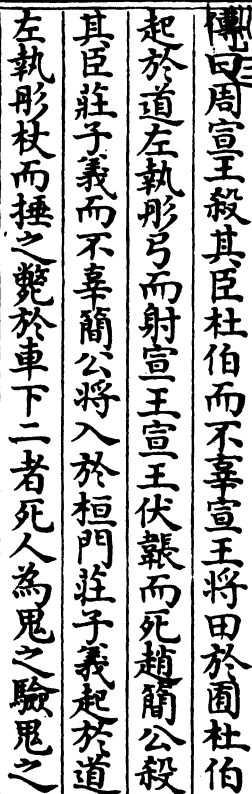 傳曰周宣王殺其臣杜伯而不辜宣王將田於囿杜伯
起於道左執彤弓而射宣王宣王伏韔而死趙簡公殺
其臣莊子義而不辜簡公將入於桓門莊子義起於道
左執彤杖而捶之斃於車下二者死人為鬼之驗鬼之